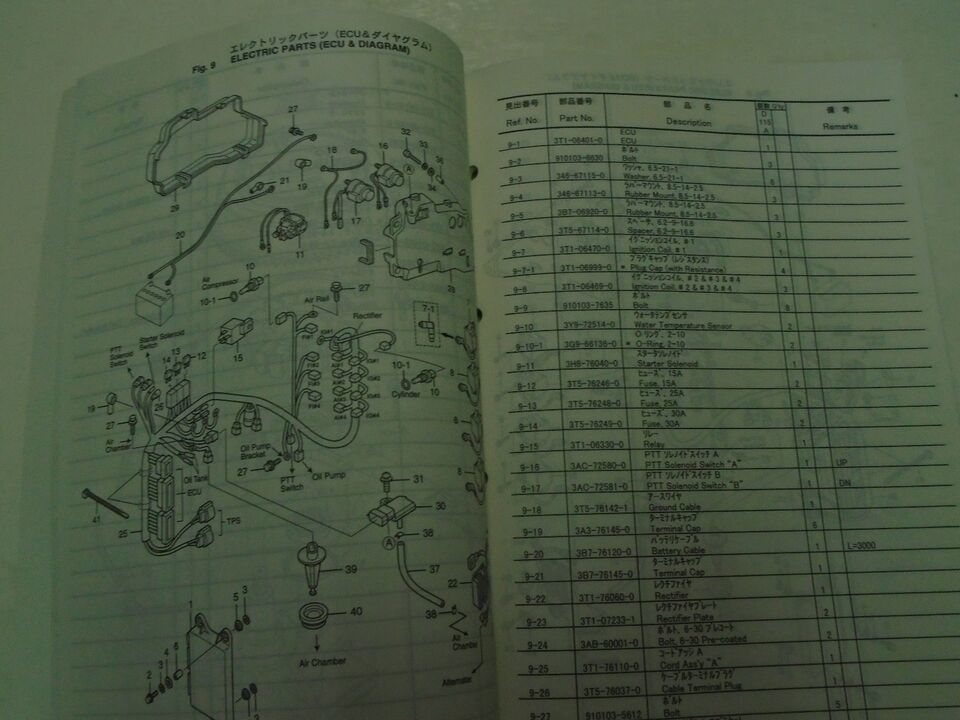 エレクトリックパーツ (ECU&ダイヤグラム)
Fig. 9 ELECTRIC PARTS (ECU & DIAGRAM)
27
32
33
16
18
34
19
21
17
29
20
11
28
Air Compressor
10
10-1
Air Rail
27
7-1
Rectifier
15
PTT Solenoid Switch
Starter Solenoid Switch
12
13
14
10-1
10
Cylinder
19
26
27
Air Chamber
Oil Pump Bracket
27
Oil Pump
PTT Switch
Oil Tank
ECU
31
30
41
25
TPS
A
38
39
37
22
40
38
Air Chamber
Air Chamber
Alternator
1
5
3
6
4
3
2
見出番号 部品番号 部 品 名 個数 Q'ty 備 考
Ref. No. Part No. Description D 115 A Remarks
ECU
9-1 3T1-06401-0 ECU 1
ボルト
9-2 910103-6630 Bolt 3
ワッシャ, 6.5-21-1
9-3 346-67115-0 Washer, 6.5-21-1 6
ラバーマウント, 8.5-14-2.5
9-4 346-67113-0 Rubber Mount, 8.5-14-2.5 3
ラバーマウント, 8.5-14-2.5
9-5 3B7-06920-0 Rubber Mount, 8.5-14-2.5 3
スペーサ, 6.2-9-16.6
9-6 3T5-67114-0 Spacer, 6.2-9-16.6 3
イグニッションコイル, #1
9-7 3T1-06470-0 Ignition Coil, # 1 1
プラグキャップ (レジスタンス)
9-7-1 3T1-06999-0 * Plug Cap (with Resistance) 4
イグニッションコイル, #2 & #3 & #4
9-8 3T1-06469-0 Ignition Coil, # 2 & # 3 & # 4 3
ボルト
9-9 910103-7635 Bolt 8
ウォータテンプセンサ
9-10 3Y9-72514-0 Water Temperature Sensor 2
Oリング, 2-10
9-10-1 3G9-66136-0 * O-Ring, 2-10 2
スタータソレノイド
9-11 3H8-76040-0 Starter Solenoid 1
ヒューズ, 15A
9-12 3T5-76246-0 Fuse, 15A 2
ヒューズ, 25A
9-13 3T5-76248-0 Fuse, 25A 2
ヒューズ, 30A
9-14 3T5-76249-0 Fuse, 30A 2
リレー
9-15 3T1-06330-0 Relay 1
PTT ソレノイドスイッチ A
9-16 3AC-72580-0 PTT Solenoid Switch "A" 1 UP
PTT ソレノイドスイッチ B
9-17 3AC-72581-0 PTT Solenoid Switch "B" 1 DN
アースワイヤ
9-18 3T5-76142-1 Ground Cable 1
ターミナルキャップ
9-19 3A3-76145-0 Terminal Cap 6
バッテリケーブル
9-20 3B7-76120-0 Battery Cable 1 L=3000
ターミナルキャップ
9-21 3B7-76145-0 Terminal Cap 1
レクチファイヤ
9-22 3T1-76060-0 Rectifier 1
レクチファイヤプレート
9-23 3T1-07233-1 Rectifier Plate 2
ボルト, 6-30 プレコート
9-24 3AB-60001-0 Bolt, 6-30 Pre-coated 2
コードアッシ A
9-25 3T1-76110-0 Cord Ass'y "A" 1
ケーブルターミナルプラグ
9-26 3T5-76037-0 Cable Terminal Plug 1
ボルト
9-27 910103-5612 Bolt 5